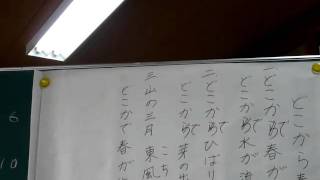 どこから春
一どこかで春が
どこかで水が流
二どこかでひばり
どこかで芽の出
三山の三月 東風
こち
どこかで春が
6
10